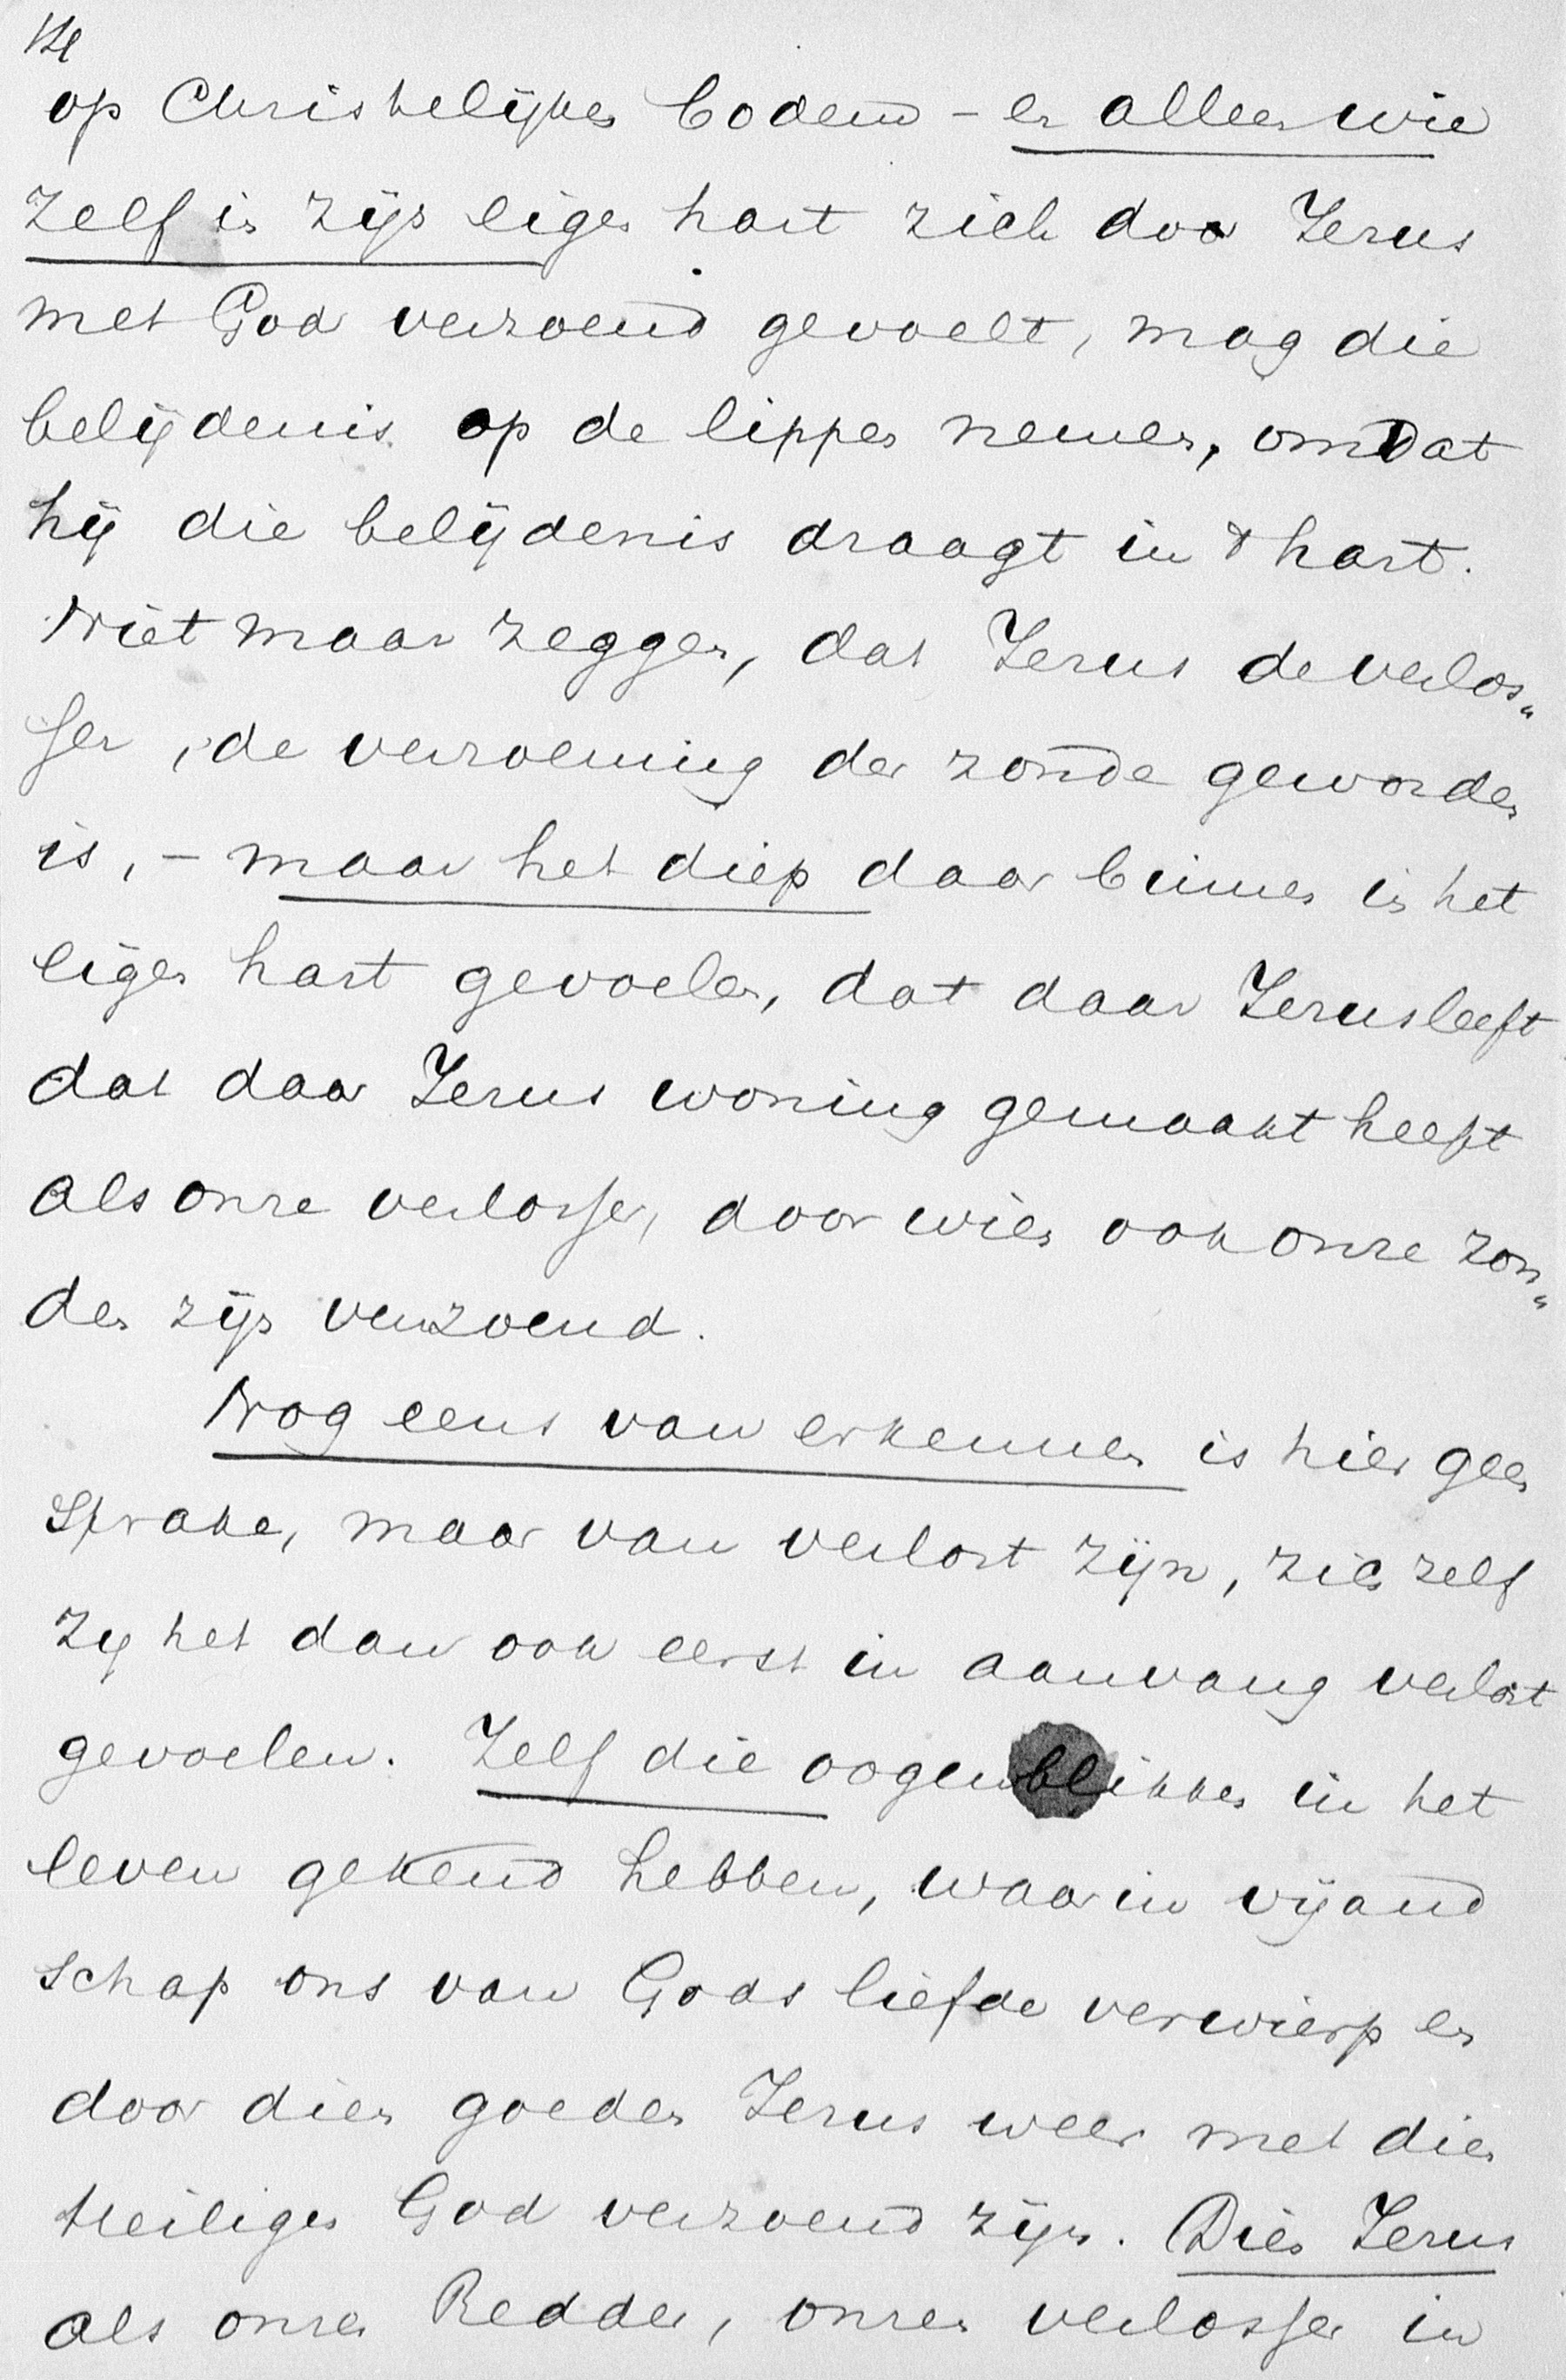 op Christelijken bodem - en alleen wie
zelf in zijn eigen hart zich door Jezus
met God verzoend gevoelt, mag die
belijdenis op de lippen nemen, omdat
hij die belijdenis draagt in 't hart.
Niet maar zeggen, dat Jezus de verlos„
ser, de verzoening der zonde geworden
is, - maar het diep daar binnen in het
eigen hart gevoelen, dat daar Jezus leeft
dat daar Jezus woning gemaakt heeft
als onze verlosser, door wien ook onze zon„
den zijn verzoend.
Nog eens van erkennen is hier geen
Sprake, maar van verlost zijn, zich zelf
zij het dan ook eerst in aanvang verlost
gevoelen. Zelf die oogenblikken in het
leven gekend hebben, waarin vijand
schap ons van Gods liefde verwierp en
door dien goeden Jezus weer met dien
Heiligen God verzoend zijn. Dien Jezus
als onzen Redder, onzen verlosser in